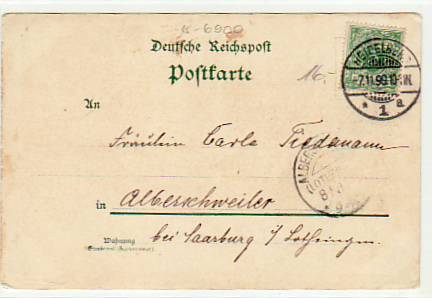 K-6900
Deutsche Reichspost
Postkarte
16,-
HEIDELBERG
-7.11.99.
* 1 a
An
Fräulein Carla Tiedemann
in Alberschweiler
Wohnung
bei Saarburg i/ Lothringen.